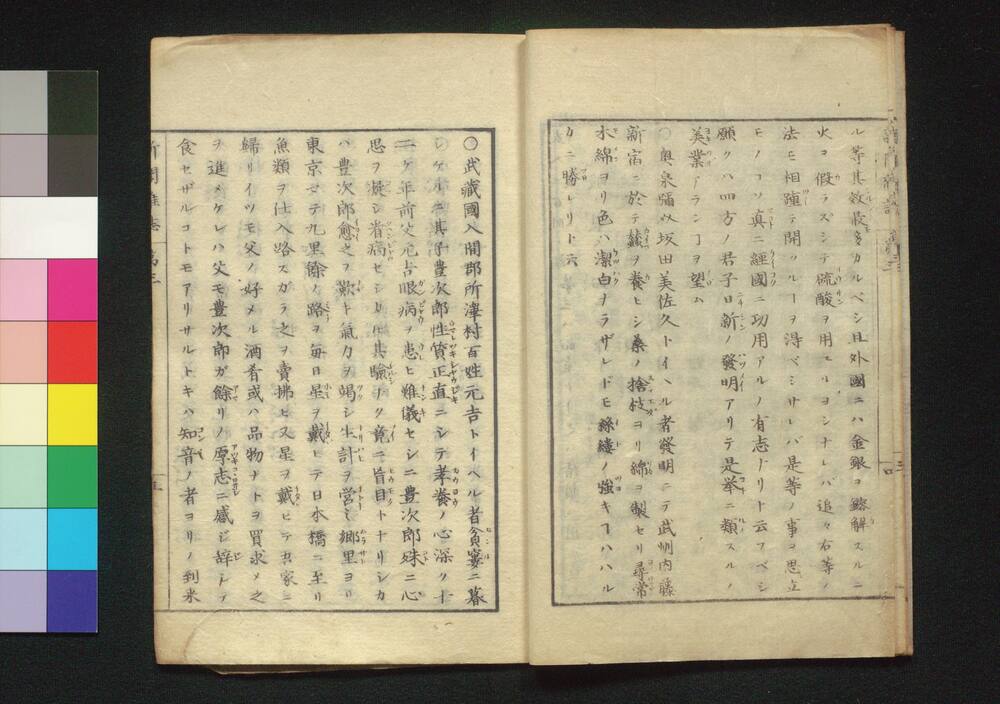 ル等其效最多カルベシ且外國ニハ金銀ヲ鎔解スルニ
火ヲ假ラズシテ硫酸ヲ用ヒルヨシナレバ追々右等ノ
法モ相踵テ開ツルヿヲ得ベシサレバ是等ノ事ヲ思立
モノコソ真ニ經國ニ功用アルノ有志ナリト云フベシ
願クハ四方ノ君子日新ノ發明アリテ是挙ニ類スルノ
美業アランヿヲ望ム
○奥泉彌以坂田美佐久トイヘル者發明ニテ武州内藤
新宿ニ於テ蠶ヲ養ヒシ桑ノ捨枝ヨリ綿ヲ製セリ尋常
木綿ヨリ色ハ潔白ナラザレドモ絲縷ノ強キヿハハル
カニ勝レリト云
○武藏國入間郡所澤村百姓元吉トイヘル者貧窶ニ暮
シケルニ其子豊次郎性質正直ニシテ孝養ノ心深ク十
二ケ年前父元吉眼病ヲ患ヒ難儀セシニ豊次郎殊ニ心
思ヲ凝シ看病セシカ𪜈其驗ナク竟ニ盲目トナリシカ
ハ豊次郎愈之ヲ歎ト氣力ヲ竭シ生計ヲ営ミ郷里ヨリ
東京マテ九里餘ノ路ヲ毎日星ヲ戴ヒテ日本橋ニ至リ
魚類ヲ仕入路スガラ之ヲ賣拂ヒ又星ヲ戴ヒテ吾家ニ
歸リイツモ父ノ好メル酒肴或ハ品物ナトヲ買求メ之
ヲ進メケレハ父モ豊次郎ガ餘リノ厚志ニ感ジ辞シテ
食セザルコトモアリサルトキハ知音ノ者ヨリノ到来